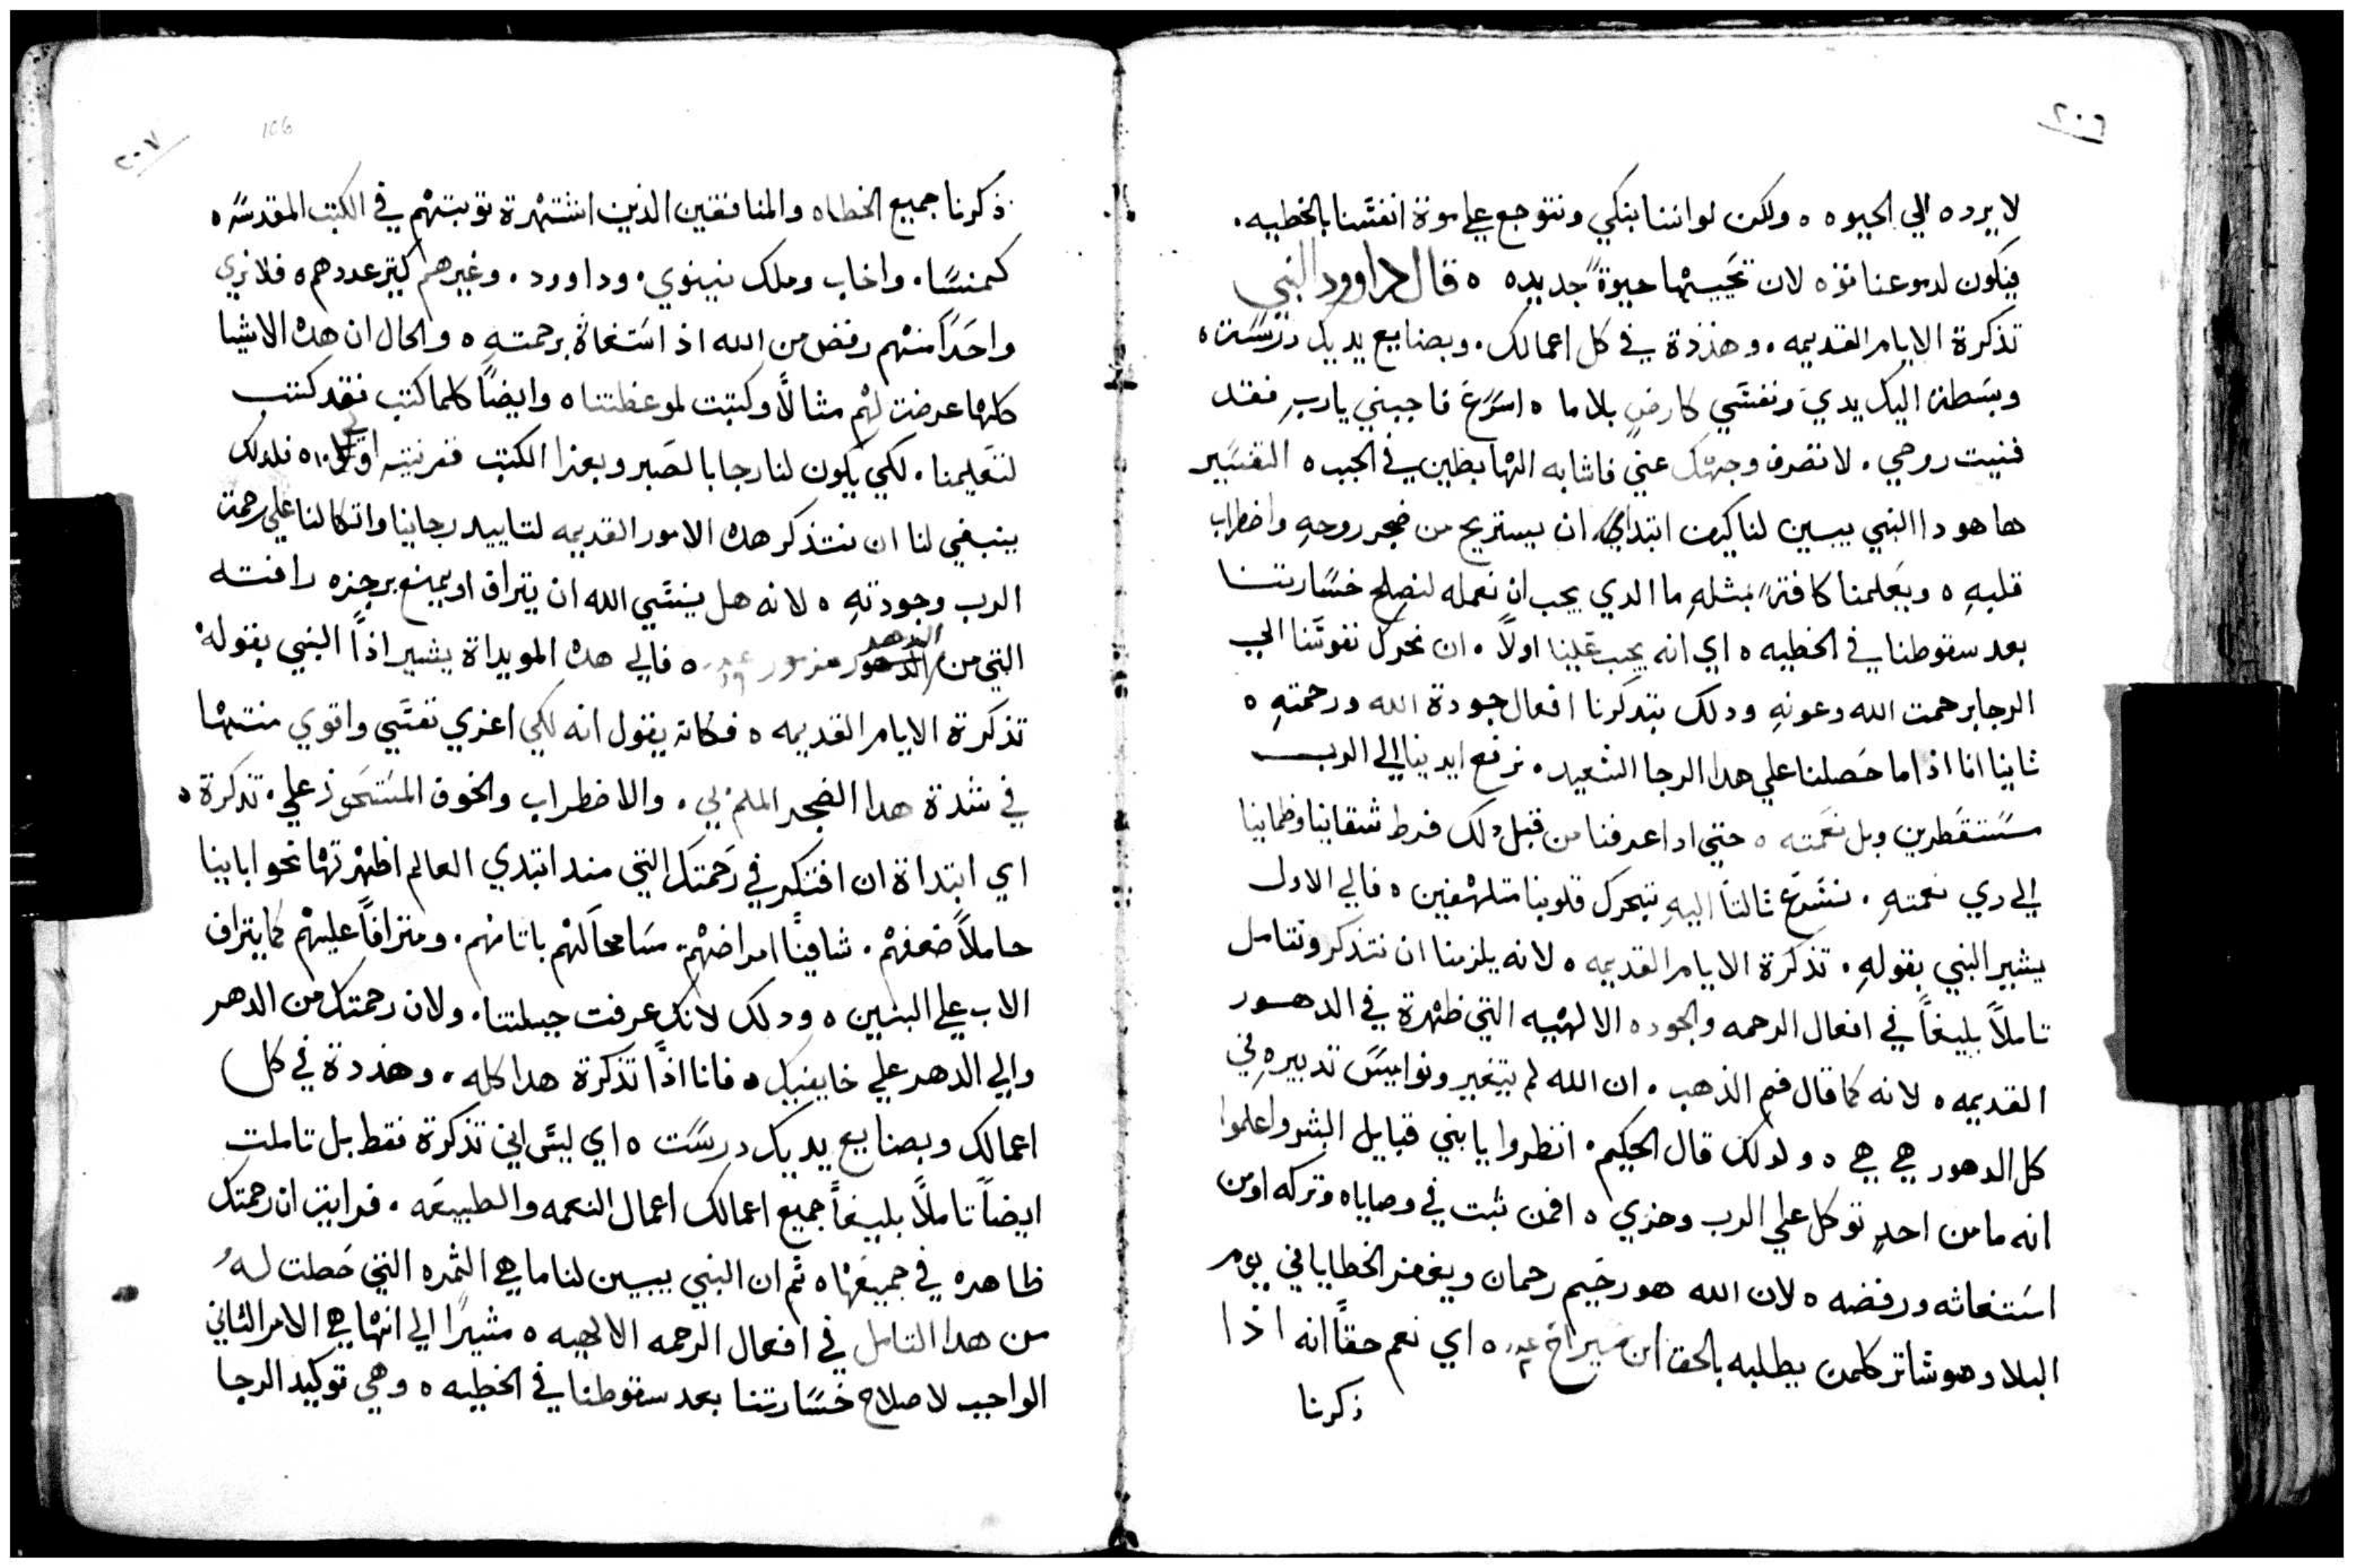 ٢٠٦
لا يرده الي الحيوه ٥ ولكن لواننا بنكي ونتوجع علي موتة انفسنا بالخطيه ٠
فيكون لدموعنا قوه لان تحييها حيوةً جديده ٥ قال داوود النبي
تذكرة الايام القديمه ٠ وهذذة في كل اعمالك ٠ وبصنايع يديك درست ٥
وبسطت اليك يدي ونفسي كارضٍ بلا ما ٥ اسرع فاجبني يارب فقد
فنيت روحي ٠ لا تصرف وجهك عني فاشابه الهابطين في الجب ٥ التفسير
ها هو دا النبي يبين لنا كيف ابتدا ان يستريح من ضجر روحهِ واضطراب
قلبهِ ٥ ويعلمنا كافةً بمثلهِ ما الدي يجب ان نعمله لنصلح خسارتنا
بعد سقوطنا في الخطيه ٥ اي انه يجب علينا اولاً ٠ ان نحرك نفوسنا الي
الرجا برحمت الله وعونهِ ودلك بتدكرنا افعال جودة الله ورحمتهِ ٥
ثانيا انا اذا ما حصلنا علي هدا الرجا السعيد ٠ نرفع ايدينا الي الرب
مستقطرين وبل نعمته ٥ حتي ادا عرفنا من قبل دلك فرط شقاينا وظماينا
الي ري نعمتهِ ٠ نسرع ثالثاً اليهِ بتحرك قلوبنا متلهفين ٥ فالي الاول
يشير النبي بقولهِ ٠ تذكرة الايام القديمه ٥ لانه يلزمنا ان نتذكر ونتامل
تاملاً بليغاً في افعال الرحمه والجوده الالهيه التي ظهرة في الدهور
القديمه ٥ لانه كما قال فم الذهب ٠ ان الله لم يتغير ونواميس تدبيره في
كل الدهور هي هي ٥ ولدلك قال الحكيم ٠ انظروا يا بني قبايل البشر واعلموا
انه ما من احدٍ توكل علي الرب وخزي ٥ افمن ثبت في وصاياه وتركه اومن
استغاثه ورفضه ٥ لان الله هو رحيم رحمان ويغفر الخطايا في يوم
البلا وهو ساتر كلمن يطلبه بالحق ابن سيراخ ٥ اي نعم حقاً انه اذا
ذكرنا
٢٠٧
106
ذكرنا جميع الخطاه والمنافقين الذين اشتهرة توبتهم في الكتب المقدسه ٥
كمنسا ٠ واخاب وملك نينوي ٠ وداوود ٠ وغيرهم كتير عددهم ٥ فلا نري
واحداً منهم رفض من الله اذ استغاث برحمتهِ ٥ والحال ان هده الاشيا
كلها عرضت لهم مثالاً وكتبت لموعظتنا ٥ وايضاً كلما كتب فقد كتب
لتعليمنا ٠ لكي يكون لنا رجا بالصبر وبعزا الكتب ٥ فلدلك
ينبغي لنا ان نتذكر هده الامور القديمه لتاييد رجاينا واتكالنا علي رحمة
الرب وجودتهِ ٥ لانه هل ينسي الله ان يتراف او يمنع برجزه رافته
التي من الدهر مزمور ٥ فالي هده المويداة يشير اذاً النبي بقوله
تذكرة الايام القديمه ٥ فكانه يقول انه لكي اعزي نفسي واقوي منتها
في شدة هدا الضجر الملم بي ٠ والاضطراب والخوف المستحوذ علي ٠ تذكرة ٥
اي ابتداة ان افتكر في رحمتك التي مند ابتدي العالم اظهرتها نحو ابابينا
حاملاً ضعفهم ٠ شافياً امراضهم ٠ مسامحاً لهم باتامهم ٠ ومترافاً عليهم كما يتراف
الاب علي البنين ٥ ودلك لانك عرفت جبلتنا ٠ ولان رحمتك من الدهر
والي الدهر علي خايفيك ٥ فانا اذاً تذكرة هدا كله ٠ وهذدة في كل
اعمالك وبصنايع يديك درست ٥ اي ليس اني تذكرة فقط بل تاملت
ايضاً تاملاً بليغاً جميع اعمالك اعمال النعمه والطبيعه ٠ فرايت ان رحمتك
ظاهره في جميعها ٥ ثم ان النبي يبين لنا ما هي الثمره التي حصلت لهُ
من هدا التامل في افعال الرحمه الالهيه ٥ مشيراً الي انها هي الامر الثاني
الواجب لاصلاح خسارتنا بعد سقوطنا في الخطيه ٥ وهي توكيد الرجا